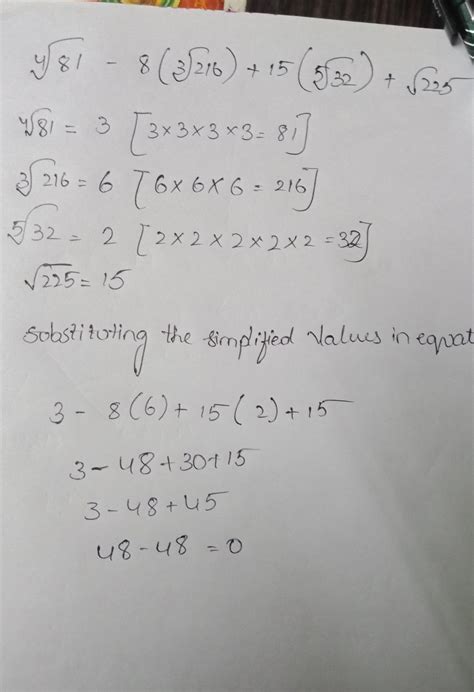 ⁴√81 - 8 (³√216) + 15 (⁵√32) + √225
⁴√81 = 3 [3×3×3×3= 81]
³√216 = 6 [6×6×6 = 216]
⁵√32 = 2 [2×2×2×2×2 =32]
√225 = 15
substituting the simplified values in equat
3 - 8(6) + 15(2) + 15
3 - 48 + 30 + 15
3 - 48 + 45
48 - 48 = 0